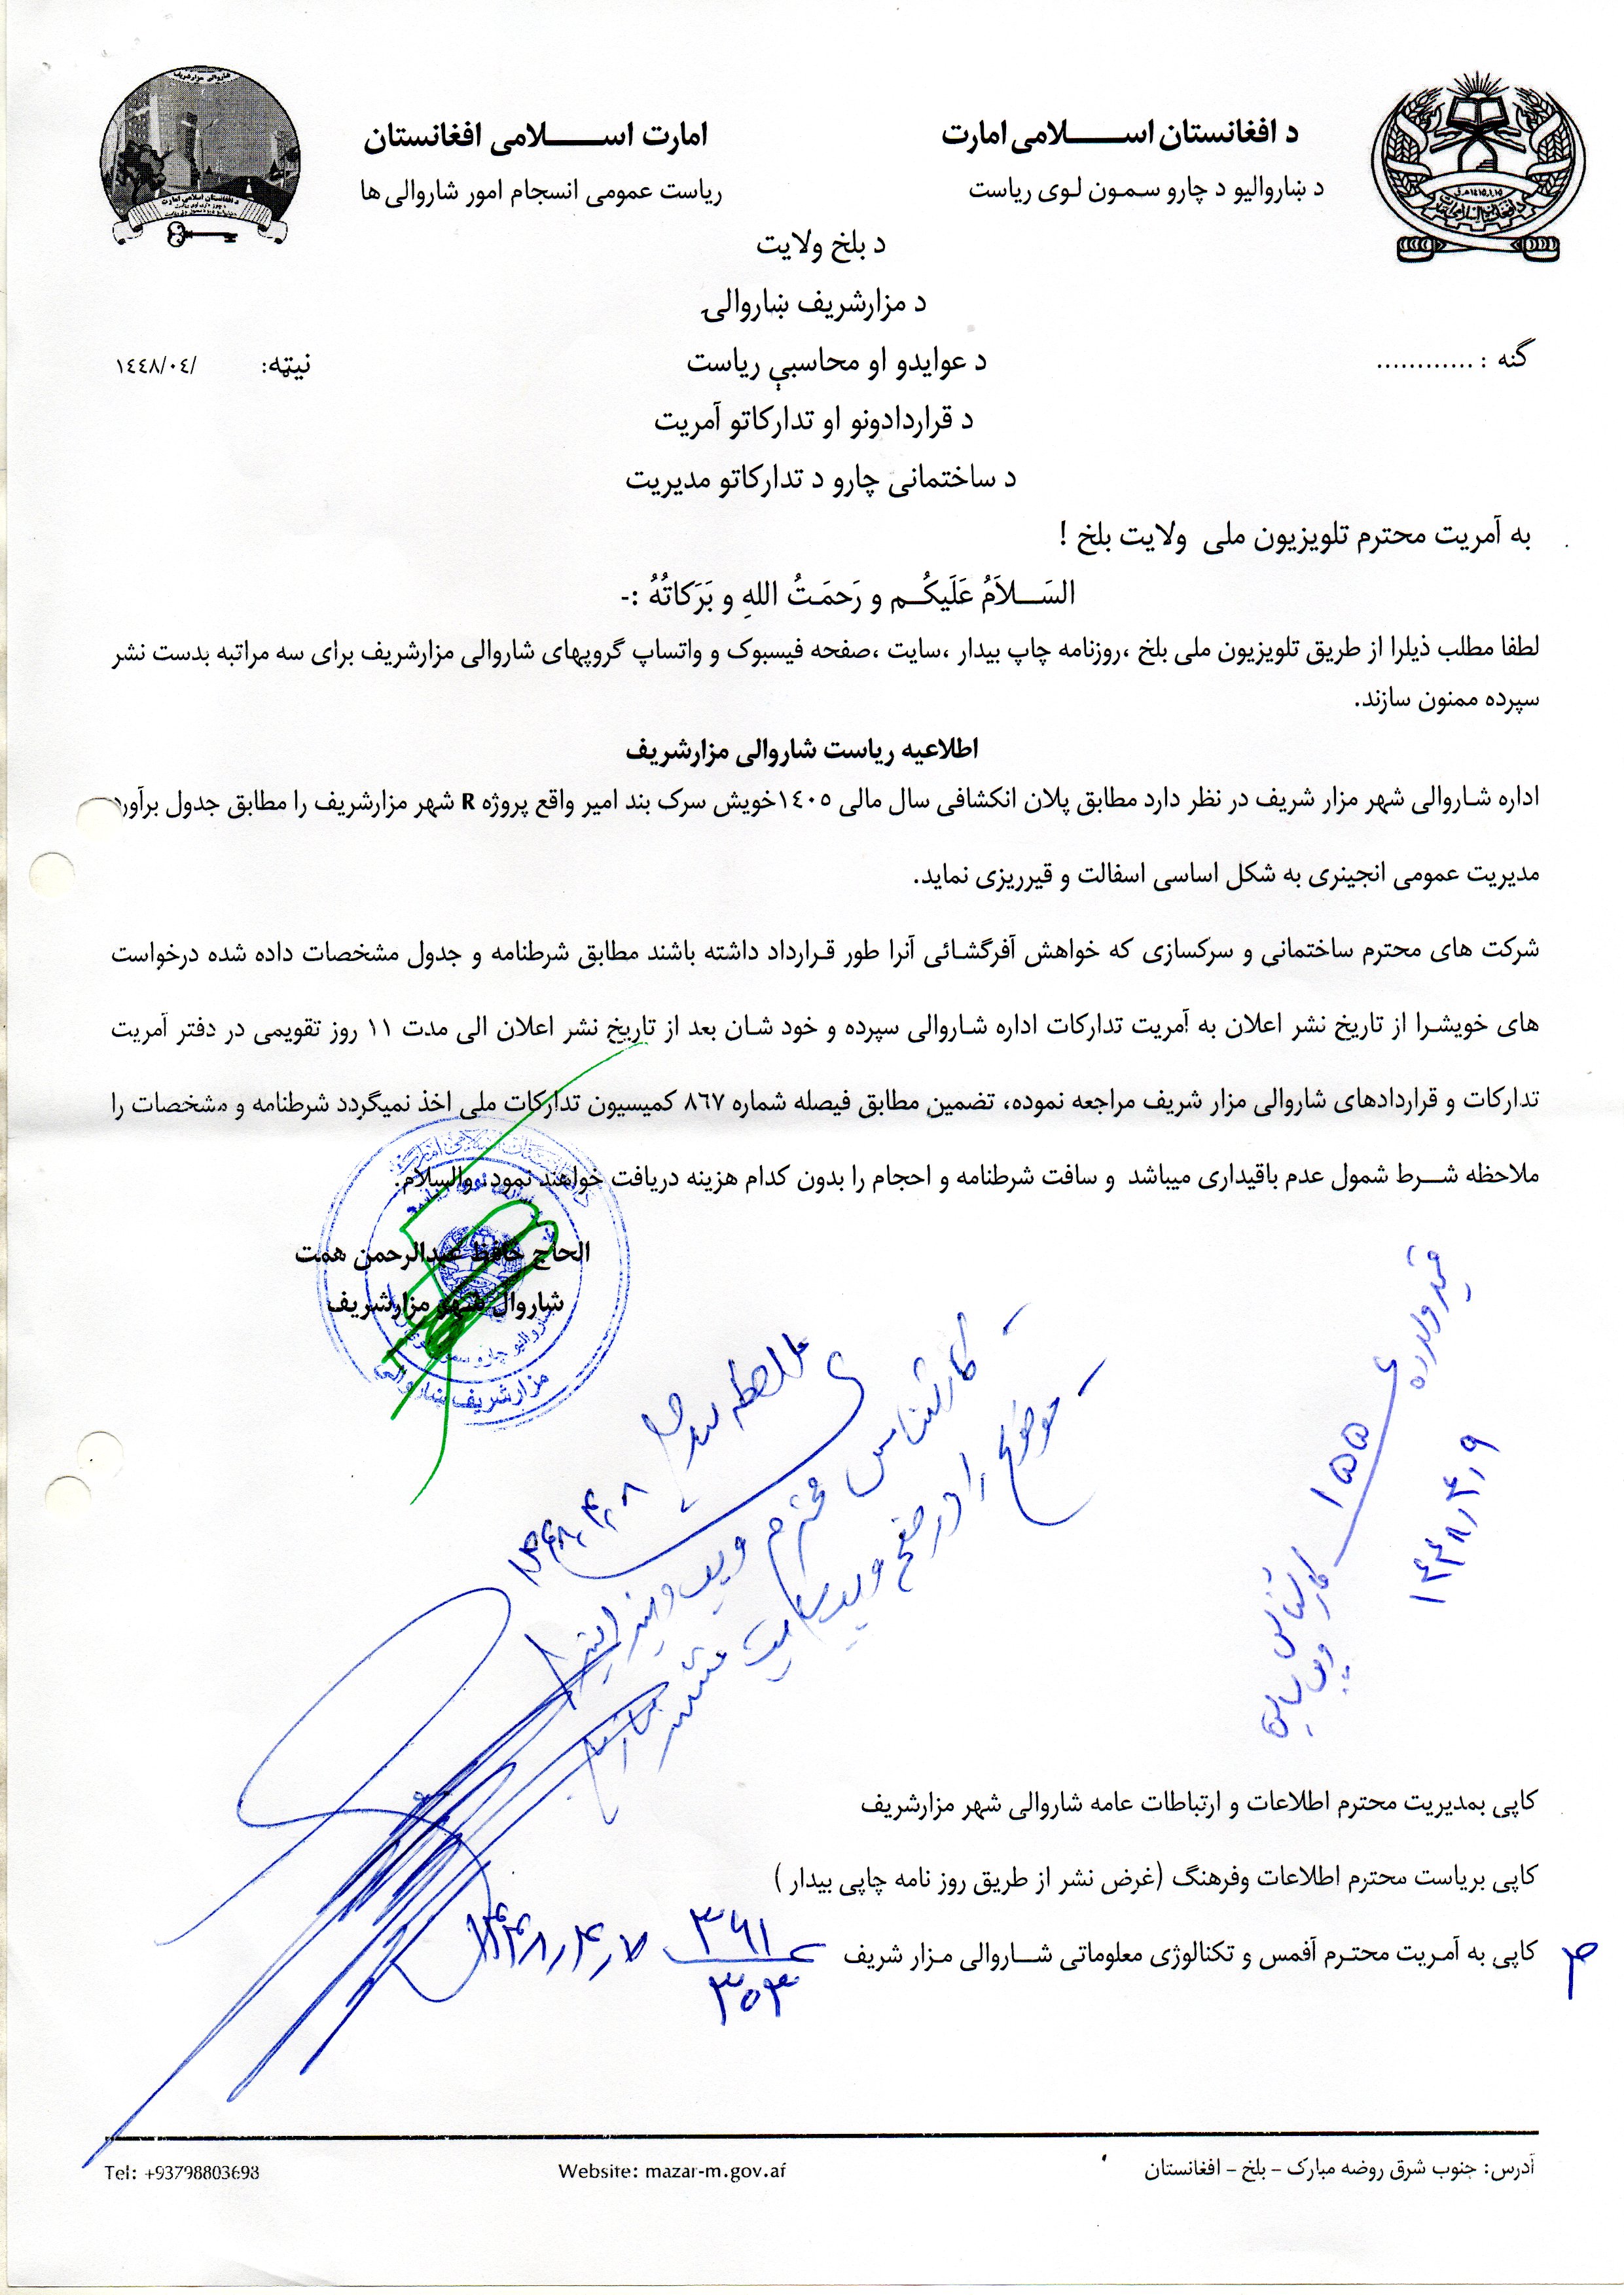 د افغانستان اســـــلامی امارت
امارت اســـــلامی افغانستان
د ښاروالیو د چارو سمون لوی ریاست
ریاست عمومی انسجام امور شاروالی ها
د بلخ ولایت
د مزارشریف ښاروالۍ
گڼه : ............
د عوایدو او محاسبې ریاست
نیټه: /١٤٤٨/٠٤
د قراردادونو او تدارکاتو آمریت
د ساختمانی چارو د تدارکاتو مدیریت
به آمریت محترم تلویزیون ملی ولایت بلخ !
السَــلاَمُ عَلَیکُــم و رَحمَتُ اللهِ و بَرَکاتُهُ :-
لطفا مطلب ذیلرا از طریق تلویزیون ملی بلخ ،روزنامه چاپ بیدار ،سایت ،صفحه فیسبوک و واتساپ گروپهای شاروالی مزارشریف برای سه مراتبه بدست نشر
سپرده ممنون سازند.
اطلاعیه ریاست شاروالی مزارشریف
اداره شاروالی شهر مزار شریف در نظر دارد مطابق پلان انکشافی سال مالی ١٤٠٥خویش سرک بند امیر واقع پروژه R شهر مزارشریف را مطابق جدول برآورد
مدیریت عمومی انجینری به شکل اساسی اسفالت و قیرریزی نماید.
شرکت های محترم ساختمانی و سرکسازی که خواهش آفرگشائی آنرا طور قرارداد داشته باشند مطابق شرطنامه و جدول مشخصات داده شده درخواست
های خویشرا از تاریخ نشر اعلان به آمریت تدارکات اداره شاروالی سپرده و خود شان بعد از تاریخ نشر اعلان الی مدت ١١ روز تقویمی در دفتر آمریت
تدارکات و قراردادهای شاروالی مزار شریف مراجعه نموده، تضمین مطابق فیصله شماره ٨٦٧ کمیسیون تدارکات ملی اخذ نمیگردد شرطنامه و مشخصات را
ملاحظه شــرط شمول عدم باقیداری میباشد و سافت شرطنامه و احجام را بدون کدام هزینه دریافت خواهند نمود. والسلام.
الحاج حافظ عبدالرحمن همت
شاروال شهر مزارشریف
مزارشریف ښاروالۍ
ملاحظه شد
١٤٤٨,٤,٨
- کارشناس محترم ویب
- موضوع را در صفحه ویب سایت نشر
۱۵۵
١٤٤٨/٤/٩
کارشناس ویب سایت
کاپی بمدیریت محترم اطلاعات و ارتباطات عامه شاروالی شهر مزارشریف
کاپی بریاست محترم اطلاعات وفرهنگ (غرض نشر از طریق روز نامه چاپی بیدار )
کاپی به آمریت محترم آفمس و تکنالوژی معلوماتی شــاروالی مزار شریف
٣٦١
٣٠٣
١٤٤٨,٤,٧
آدرس: جنوب شرق روضه مبارک – بلخ – افغانستان
Website: mazar-m.gov.af
Tel: +93798803698